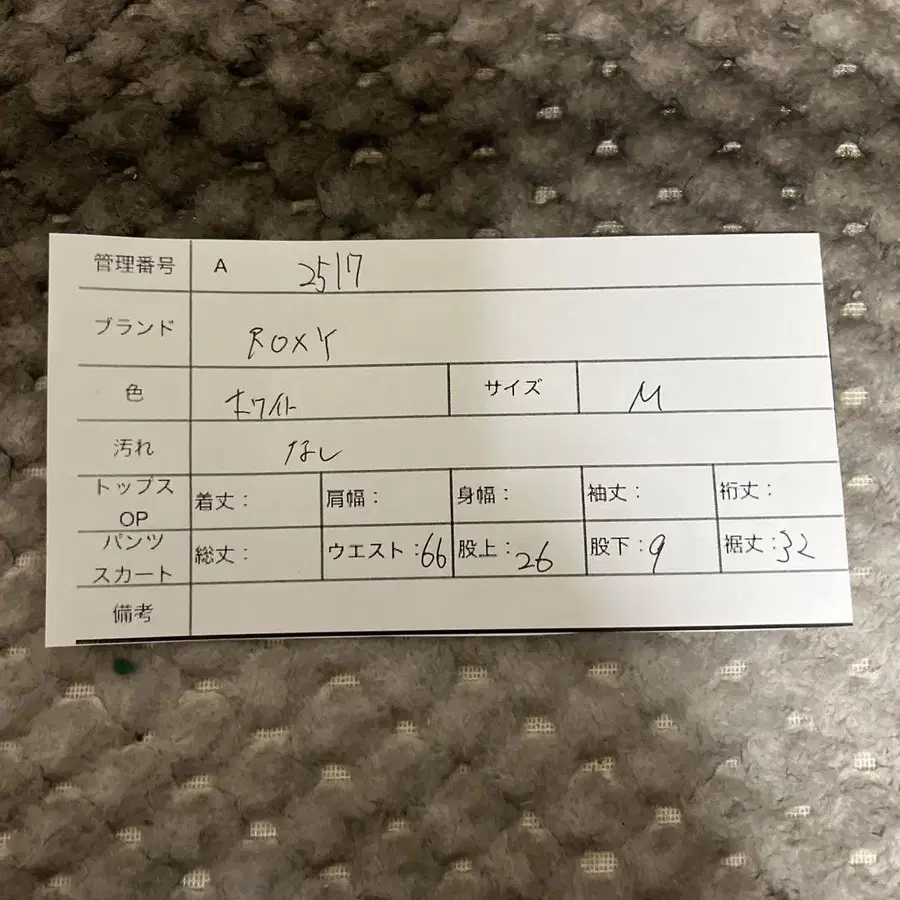 管理番号 A 2517
ブランド ROXY
色 ホワイト サイズ M
汚れ なし
トップス OP 着丈： 肩幅： 身幅： 袖丈： 裄丈：
パンツ スカート 総丈： ウエスト：66 股上：26 股下：9 裾丈：32
備考